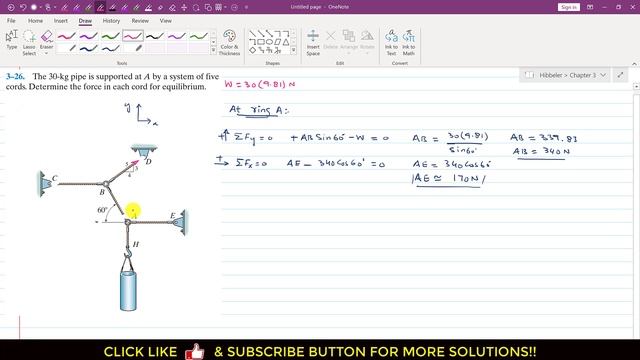 Untitled page - OneNote
Sign in
File Home Insert Draw History Review View Help
Type Lasso Select Eraser
Color & Thickness
Shapes
Insert Space Delete Format Background
Arrange
Ink to Text Ink to Math
Hibbeler > Chapter 3
3–26. The 30-kg pipe is supported at A by a system of five
cords. Determine the force in each cord for equilibrium.
W = 30(9.81) N
At ring A:-
+↑ ΣFy = 0 + AB Sin60° - W = 0 AB = 30(9.81) / Sin60° AB = 339.83
AB = 340 N
+→ ΣFx = 0 AE - 340 Cos60° = 0 AE = 340 Cos60°
AE ≃ 170 N
y
x
C
B
D
5 3
4
60°
E
H
CLICK LIKE & SUBSCRIBE BUTTON FOR MORE SOLUTIONS!!